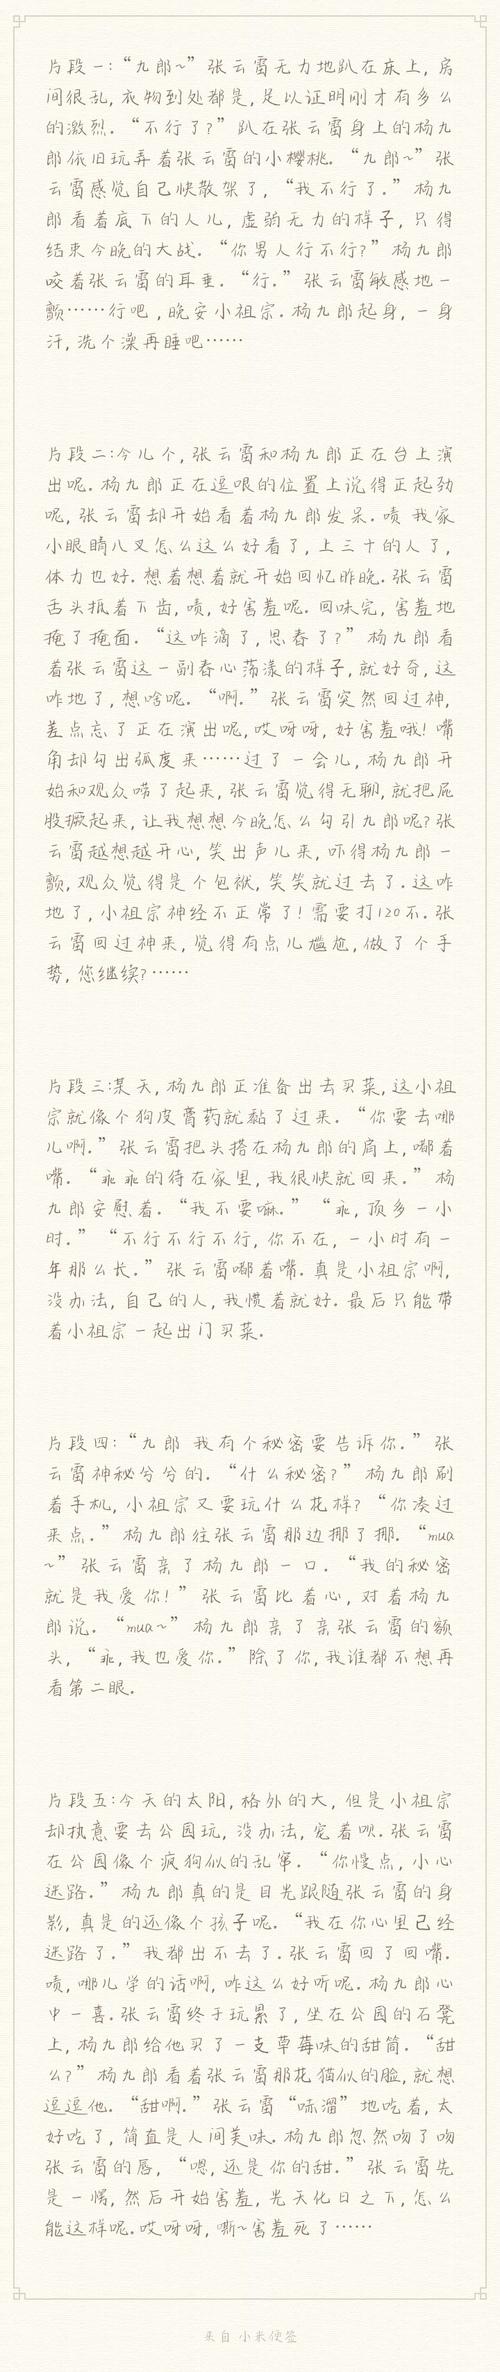 片段一:“九郎~”张云雷无力地趴在床上,房
间很乱,衣物到处都是,足以证明刚才有多么
的激烈.“不行了?”趴在张云雷身上的杨九
郎依旧玩弄着张云雷的小樱桃.“九郎~”张
云雷感觉自己快散架了,“我不行了.”杨九
郎看着底下的人儿,虚弱无力的样子,只得
结束今晚的大战.“你男人行不行?”杨九郎
咬着张云雷的耳垂.“行.”张云雷敏感地一
颤……行吧,晚安小祖宗.杨九郎起身,一身
汗,洗个澡再睡吧……
片段二:今儿个,张云雷和杨九郎正在台上演
出呢.杨九郎正在逗哏的位置上说得正起劲
呢,张云雷却开始看着杨九郎发呆.啧 我家
小眼睛八叉怎么这么好看了,上三十的人了,
体力也好.想着想着就开始回忆昨晚.张云雷
舌头抵着下齿,啧,好害羞呢.回味完,害羞地
掩了掩面.“这咋滴了,思春了?”杨九郎看
着张云雷这一副春心荡漾的样子,就好奇,这
咋地了,想啥呢.“啊.”张云雷突然回过神,
差点忘了正在演出呢,哎呀呀,好害羞哦!嘴
角却勾出弧度来……过了一会儿,杨九郎开
始和观众唠了起来,张云雷觉得无聊,就把屁
股撅起来,让我想想今晚怎么勾引九郎呢?张
云雷越想越开心,笑出声儿来,吓得杨九郎一
颤,观众觉得是个包袱,笑笑就过去了.这咋
地了,小祖宗神经不正常了!需要打120不.张
云雷回过神来,觉得有点儿尴尬,做了个手
势,您继续?……
片段三:某天,杨九郎正准备出去买菜,这小祖
宗就像个狗皮膏药就黏了过来.“你要去哪
儿啊.”张云雷把头搭在杨九郎的肩上,嘟着
嘴.“乖乖的待在家里,我很快就回来.”杨
九郎安慰着.“我不要嘛.”“乖,顶多一小
时.”“不行不行不行,你不在,一小时有一
年那么长.”张云雷嘟着嘴.真是小祖宗啊,
没办法,自己的人,我惯着就好.最后只能带
着小祖宗一起出门买菜.
片段四:“九郎 我有个秘密要告诉你.”张
云雷神秘兮兮的.“什么秘密?”杨九郎刷
着手机,小祖宗又要玩什么花样?“你凑过
来点.”杨九郎往张云雷那边挪了挪.“mua
~”张云雷亲了杨九郎一口.“我的秘密
就是我爱你!”张云雷比着心,对着杨九
郎说.“mua~”杨九郎亲了亲张云雷的额
头,“乖,我也爱你.”除了你,我谁都不想再
看第二眼.
片段五:今天的太阳,格外的大,但是小祖宗
却执意要去公园玩,没办法,宠着呗.张云雷
在公园像个疯狗似的乱窜.“你慢点,小心
迷路.”杨九郎真的是目光跟随张云雷的身
影,真是的还像个孩子呢.“我在你心里已经
迷路了.”我都出不去了.张云雷回了回嘴.
啧,哪儿学的话啊,咋这么好听呢.杨九郎心
中一喜.张云雷终于玩累了,坐在公园的石凳
上,杨九郎给他买了一支草莓味的甜筒.“甜
么?”杨九郎看着张云雷那花猫似的脸,就想
逗逗他.“甜啊.”张云雷“哧溜”地吃着,太
好吃了,简直是人间美味.杨九郎忽然吻了吻
张云雷的唇,“嗯,还是你的甜.”张云雷先
是一愣,然后开始害羞,光天化日之下,怎么
能这样呢.哎呀呀,嘶~害羞死了……
来自 小米便签